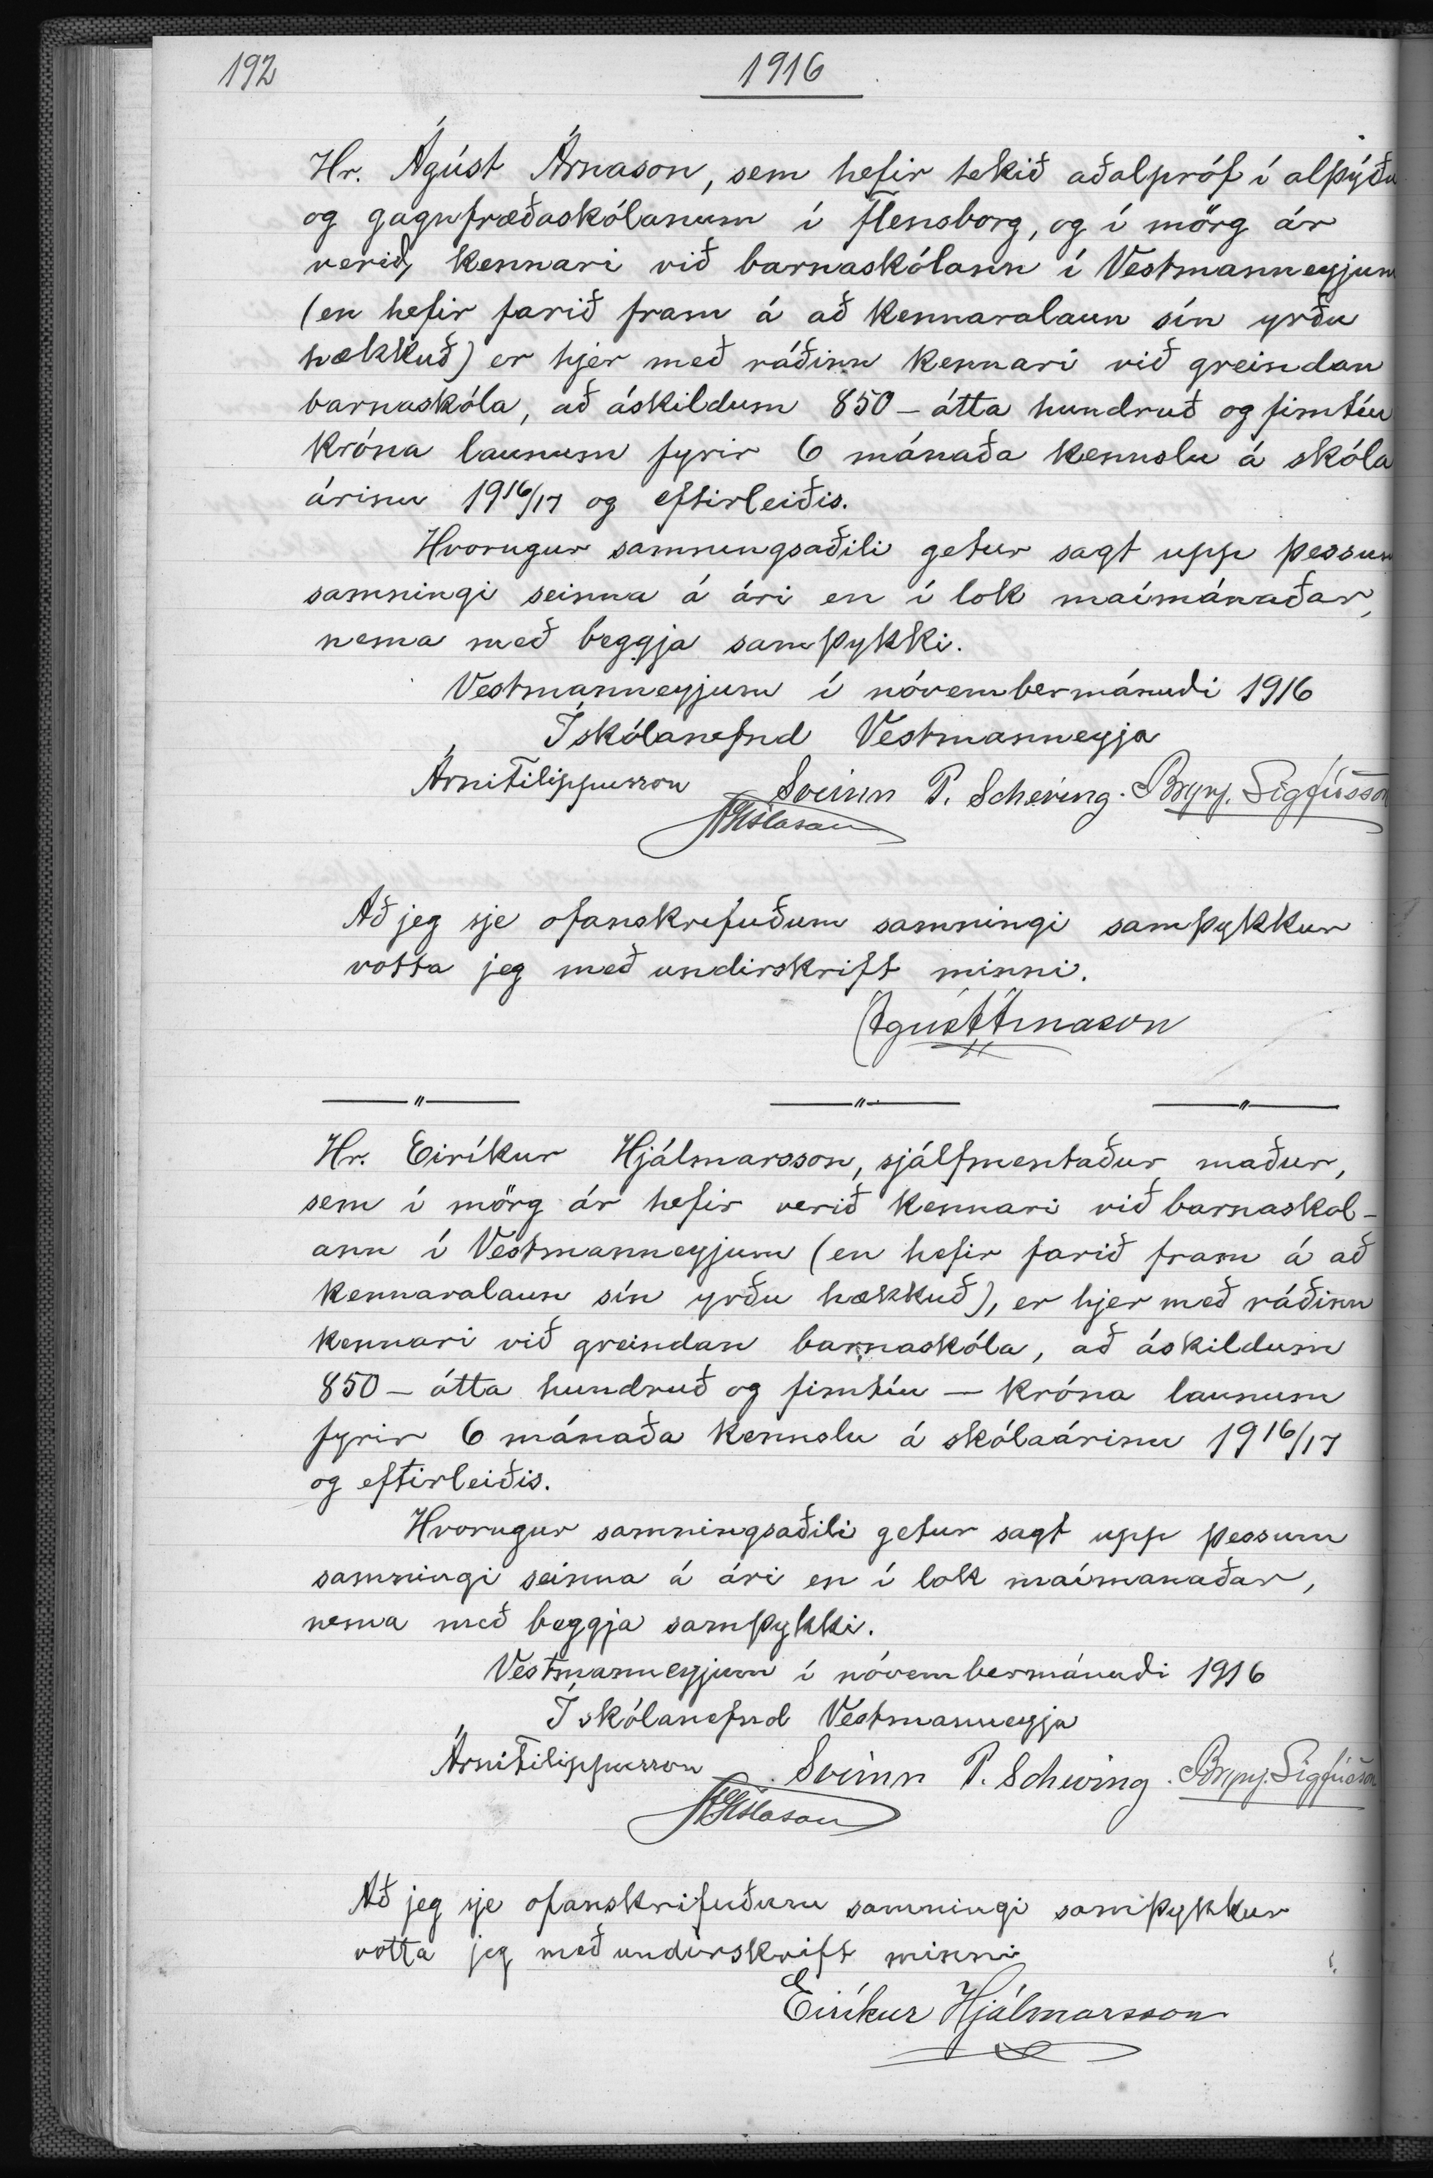 192
1916
Hr. Ágúst Árnason, sem hefir tekið aðalpróf í alþýðu
og gagnfræðaskólanum í Flensborg, og í mörg ár
verið, kennari við barnaskólann í Vestmanneyjum
(en hefir farið fram á að kennaralaun sín yrðu
hækkuð) er hjer með ráðinn kennari við greindan
barnaskóla, að áskildum 850 - átta hundruð og fimtíu
króna launum fyrir 6 mánaða kennslu á skóla
árinu 1916/17 og eftirleiðis.
Hvorugur samningsaðili getur sagt upp þessum
samningi seinna á ári en í lok maímánaðar,
nema með beggja samþykki.
Vestmanneyjum í nóvembermánuði 1916
Í skólanefnd Vestmanneyja
Árni Filippusson Sveinn P. Scheving. Brynj. Sigfússon
Gíslason
Að jeg sje ofanskrifuðum samningi samþykkur
votta jeg með undirskrift minni.
Ágúst Árnason
Hr. Eiríkur Hjálmarsson, sjálfmentaður maður,
sem í mörg ár hefir verið kennari við barnaskol-
ann í Vestmanneyjum (en hefir farið fram á að
kennaralaun sín yrðu hækkuð), er hjer með ráðinn
kennari við greindan barnaskóla, að áskildum
850 - átta hundruð og fimtíu - króna launum
fyrir 6 mánaða kennslu á skólaárinu 1916/17
og eftirleiðis.
Hvorugur samningsaðili getur sagt upp þessum
samningi seinna á ári en í lok maímanaðar,
nema með beggja samþykki.
Vestmanneyjum í nóvembermánuði 1916
Í skólanefnd Vestmanneyja
Árni Filippusson Sveinn P. Scheving. Brynj. Sigfússon
Gíslason
Að jeg sje ofanskrifuðum samningi samþykkur
votta jeg með undirskrift minni
Eiríkur Hjálmarsson